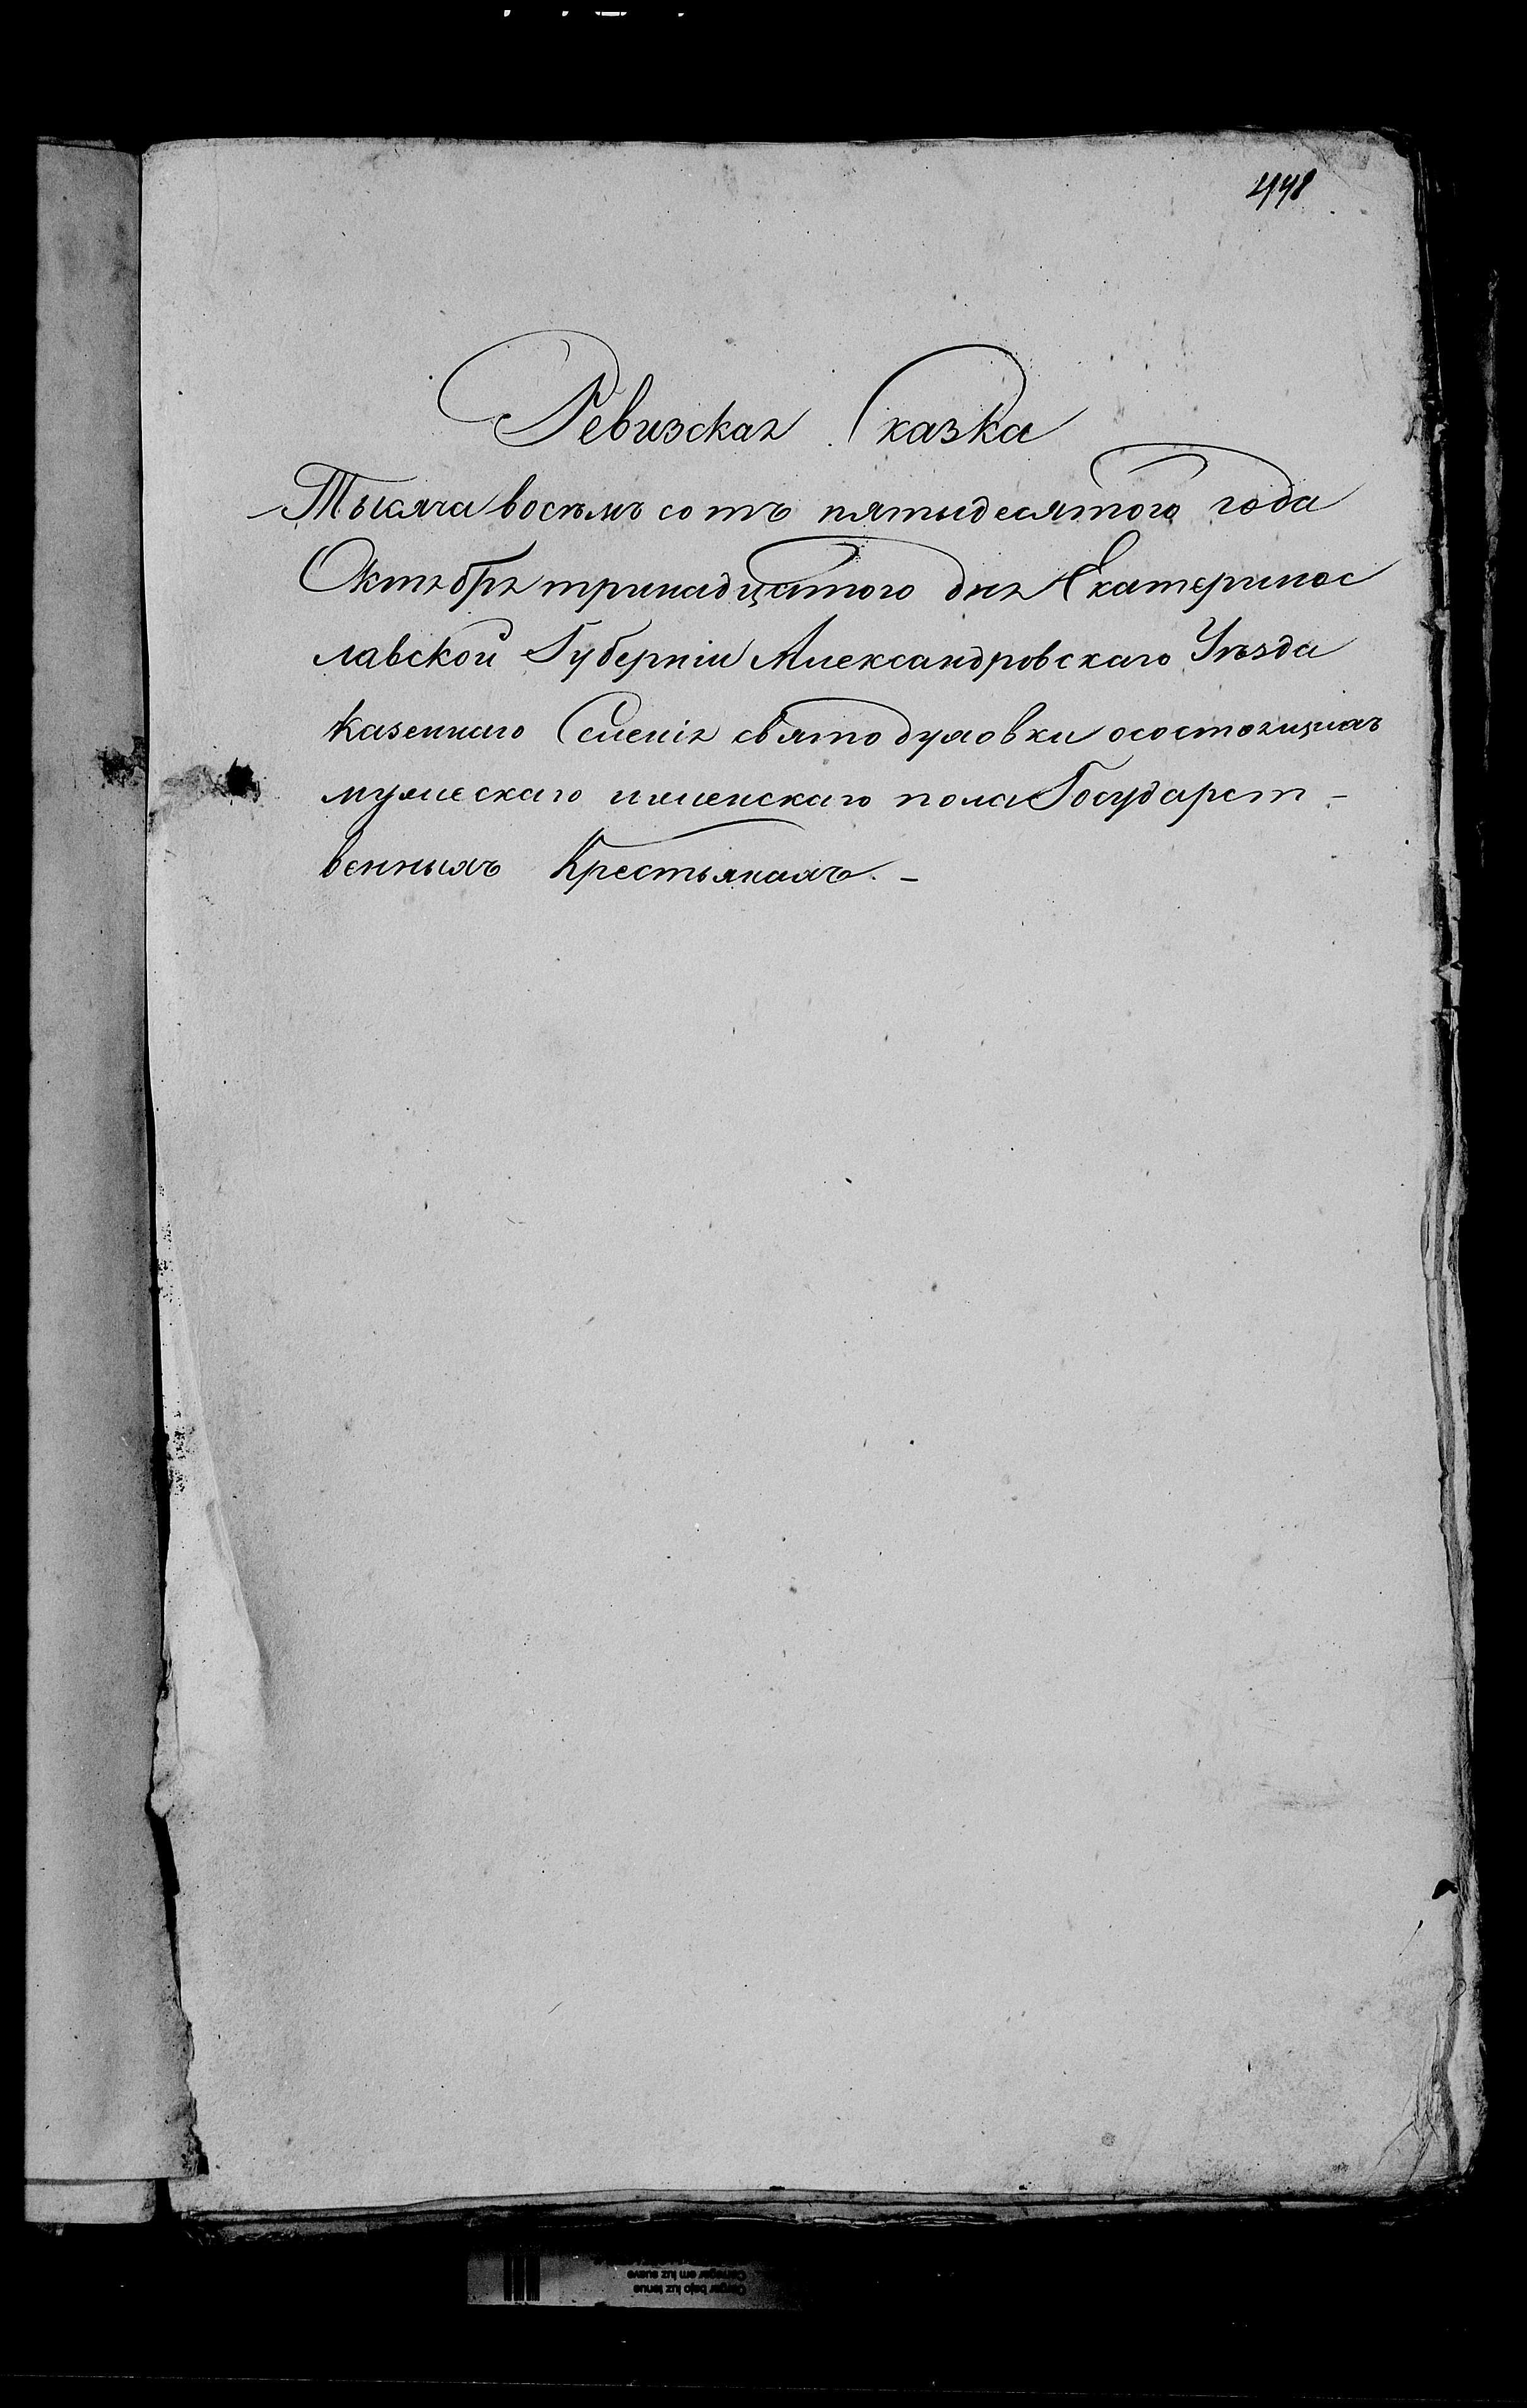 448
Ревизская Сказка
Тысяча восемь сотъ пятьідесятого года
Октября тринадцатого дня Екатеринос
лавской Губерніи Александровскаго Уѣзда
Казеннаго Селенія святодуховки осостоящихъ
мужескаго иженскаго пола Государст-
венныхъ Крестьянахъ.-